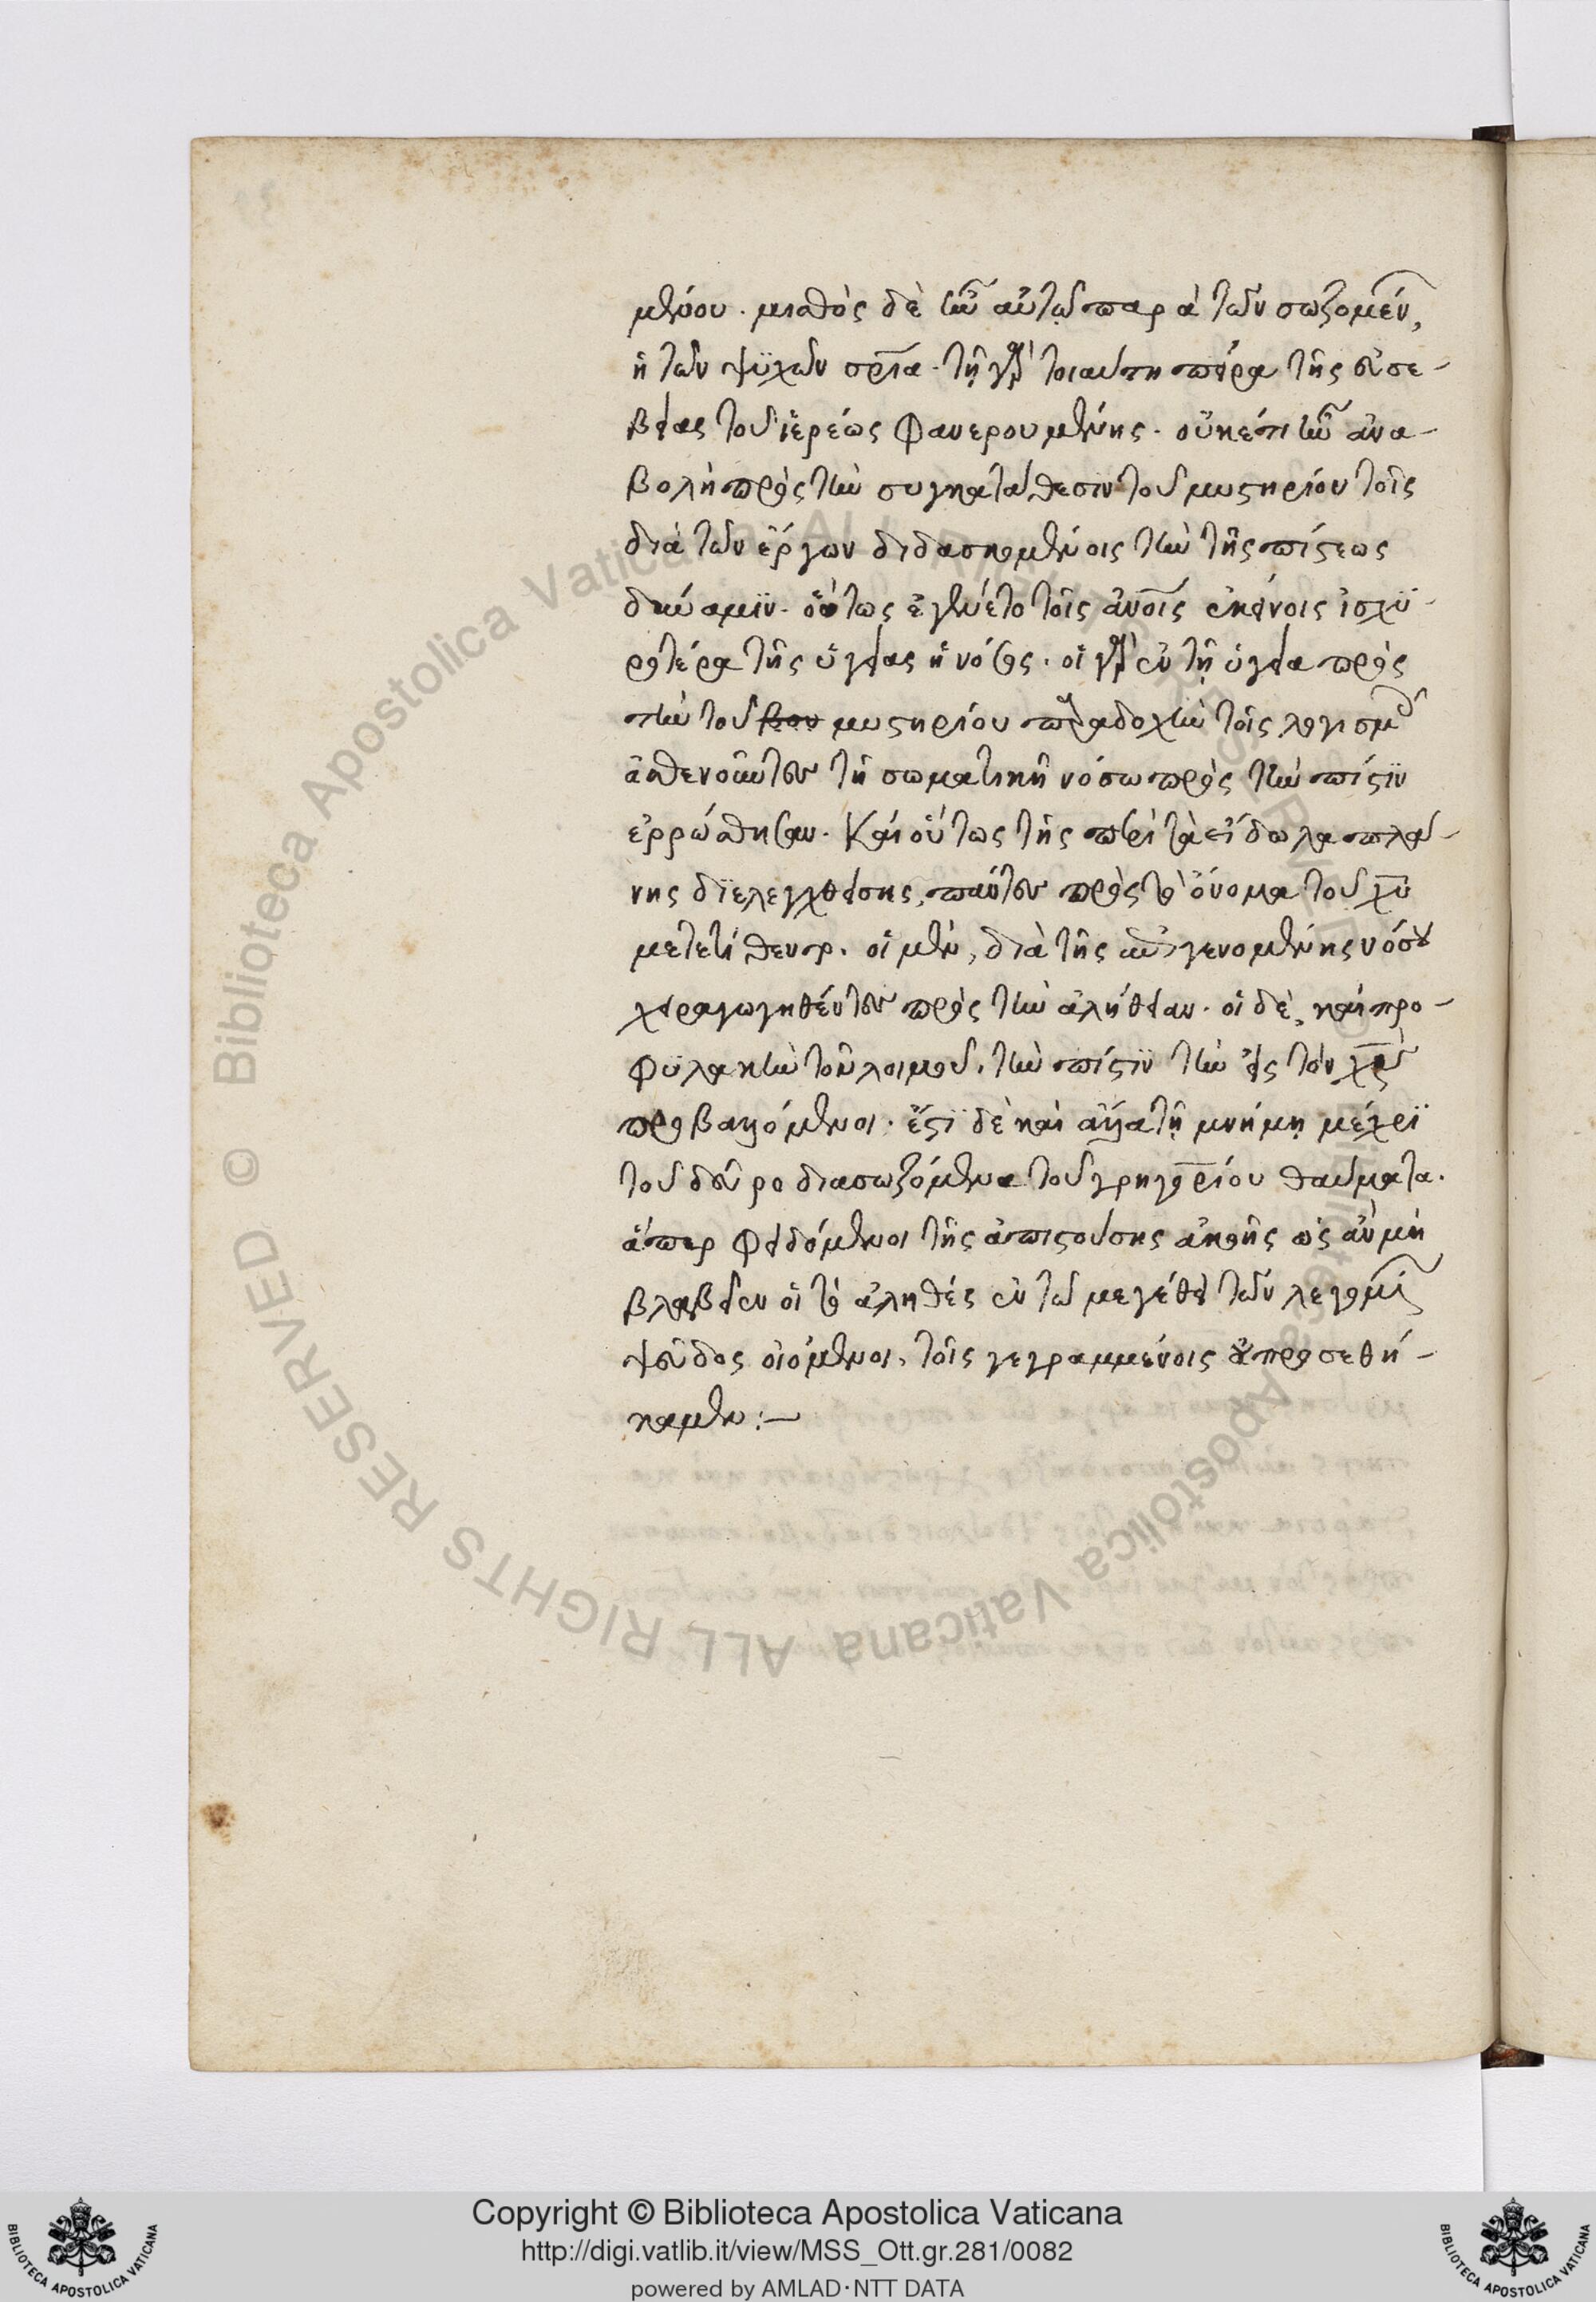 μένου. μισθὸς δὲ ἦν αὐτῷ παρὰ τῶν σωζομέν,
ἡ τῶν ψϋχῶν σρία. τῇ γὰρ τοιαύτη πείρα τῆς εὐσε-
βείας τοῦ ἱερέως φανερουμένης. οὐκέτι ἦν ἀνα-
βολὴ πρὸς τὴν συγκατάθεσιν τοῦ μυστηρίου τοῖς
διὰ τῶν ἔργων διδασκομένοις τὴν τῆς πίστεως
δύναμϊν. οὕτως ἐγένετο τοῖς ἀνοις ἐκείνοις ἰσχϋ-
ροτέρα τῆς ὑγείας ἡ νόσος. οἱ γὰρ ἐν τῇ ὑγεία πρὸς
τὴν τοῦ μυστηρίου παραδοχὴν τοῖς λογισμοῖς
ἀσθενοῦντες τῇ σωματικῇ νόσω πρὸς τὴν πίστϊν
ἐρρώσθησαν. καὶ οὕτως τῆς περὶ τὰ εἴδωλα πλά-
νης δϊελεγχθείσης, πάντες πρὸς τὸ ὄνομα τοῦ χυ
μετετίθεντο. οἱ μὲν, διὰ τῆς γενομένης νόσου
χειραγωγηθέντες πρὸς τὴν ἀλήθειαν. οἱ δὲ, καὶ προ-
φϋλακὴν τοῦ λοιμοῦ, τὴν πίστϊν τὴν εἰς τὸν χν
προβαλλόμενοι. ἔστϊ δὲ καὶ ἄλλα τῇ μνήμῃ μέχρϊ
τοῦ δεῦρο διασωζόμενα τοῦ γρηγορίου θαύματα.
ἅπερ φειδόμενοι τῆς ἀπιστούσης ἀκοῆς ὡς ἂν μὴ
βλαβεῖεν οἱ τὸ ἀληθές ἐν τῶ μεγέθει τῶν λεγομέν
ψεῦδος οἰόμενοι, τοῖς γεγραμμένοις οὐ προσεθή-
καμεν:—
Copyright © Biblioteca Apostolica Vaticana
http://digi.vatlib.it/view/MSS_Ott.gr.281/0082
powered by AMLAD·NTT DATA
BIBLIOTECA APOSTOLICA VATICANA
BIBLIOTECA APOSTOLICA VATICANA
© Biblioteca Apostolica Vaticana ALL RIGHTS RESERVED
© Biblioteca Apostolica Vaticana ALL RIGHTS RESERVED